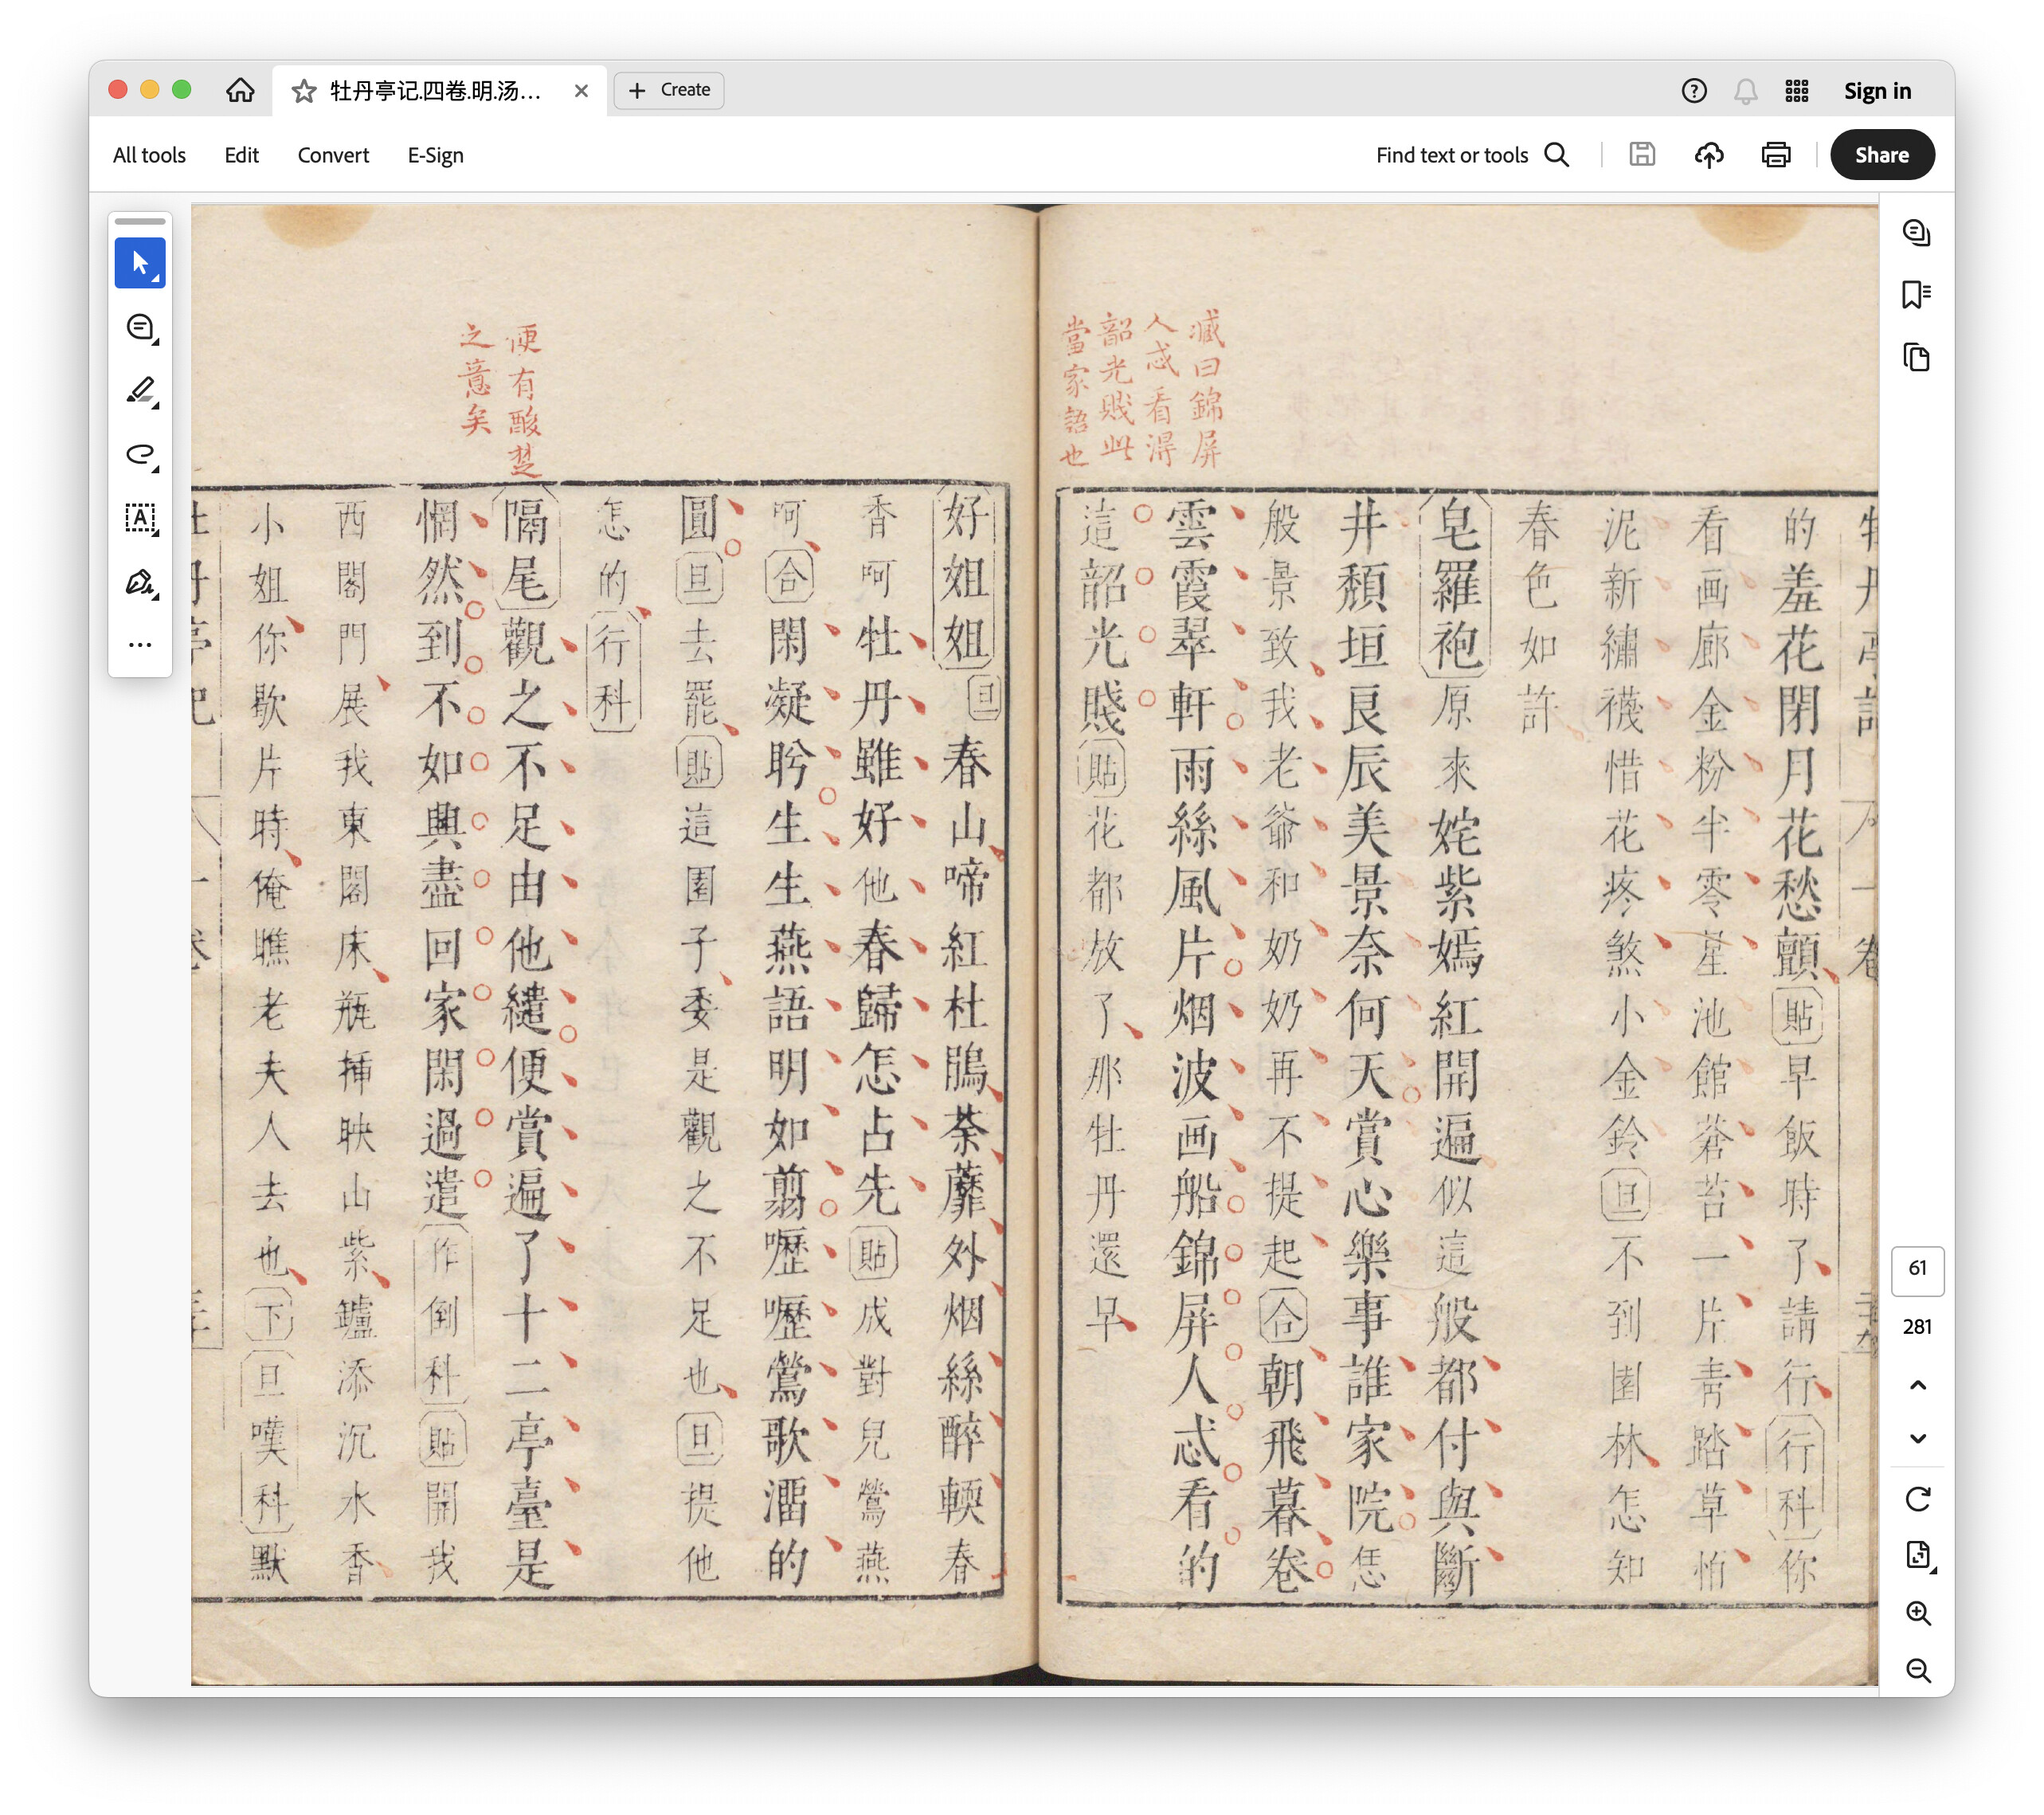 牡丹亭记.四卷.明.汤...
Create
Sign in
All tools
Edit
Convert
E-Sign
Find text or tools
Share
臧曰錦屏
人忒看得
韶光賤此
當家語也
的羞花閉月花愁顫貼早飯時了請行行科你
看画廊金粉半零星池館蒼苔一片青踏草怕
泥新繡襪惜花疼煞小金鈴旦不到園林怎知
春色如許
皂羅袍原來姹紫嫣紅開遍似這般都付與斷
井頹垣良辰美景奈何天賞心樂事誰家院恁
般景致我老爺和奶奶再不提起合朝飛暮卷
雲霞翠軒雨絲風片烟波画船錦屏人忒看的
這韶光賤貼花都放了那牡丹還早
便有酸楚
之意矣
好姐姐旦春山啼紅杜鵑荼蘼外烟絲醉輭春
香呵牡丹雖好他春歸怎占先貼成對兒鶯燕
呵合閑凝眄生生燕語明如翦嚦嚦鶯歌溜的
圓旦去罷貼這園子委是觀之不足也旦提他
怎的行科
隔尾觀之不足由他繾便賞遍了十二亭臺是
惘然到不如興盡回家閑過遣作倒科貼開我
西閣門展我東閣床瓶插映山紫鑪添沉水香
小姐你歇片時俺瞧老夫人去也下旦嘆科默
61
281